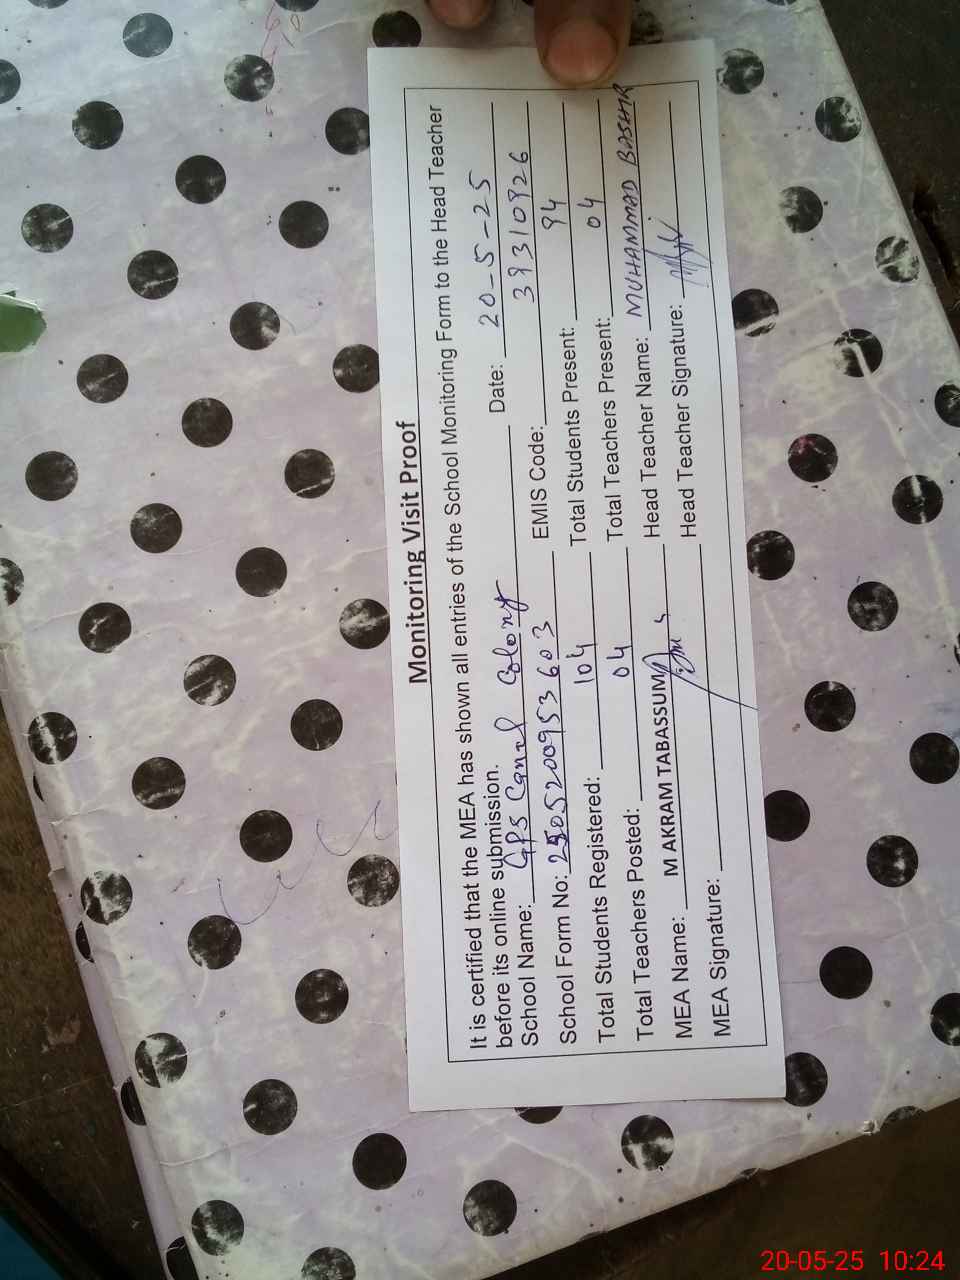 Monitoring Visit Proof
It is certified that the MEA has shown all entries of the School Monitoring Form to the Head Teacher
before its online submission.
School Name: GPS Canal Colony Date: 20-5-25
School Form No: 2505200953603 EMIS Code: 39310926
Total Students Registered: 104 Total Students Present: 94
Total Teachers Posted: 04 Total Teachers Present: 04
MEA Name: M AKRAM TABASSUM Head Teacher Name: MUHAMMAD BASHIR
MEA Signature: Head Teacher Signature:
20-05-25 10:24